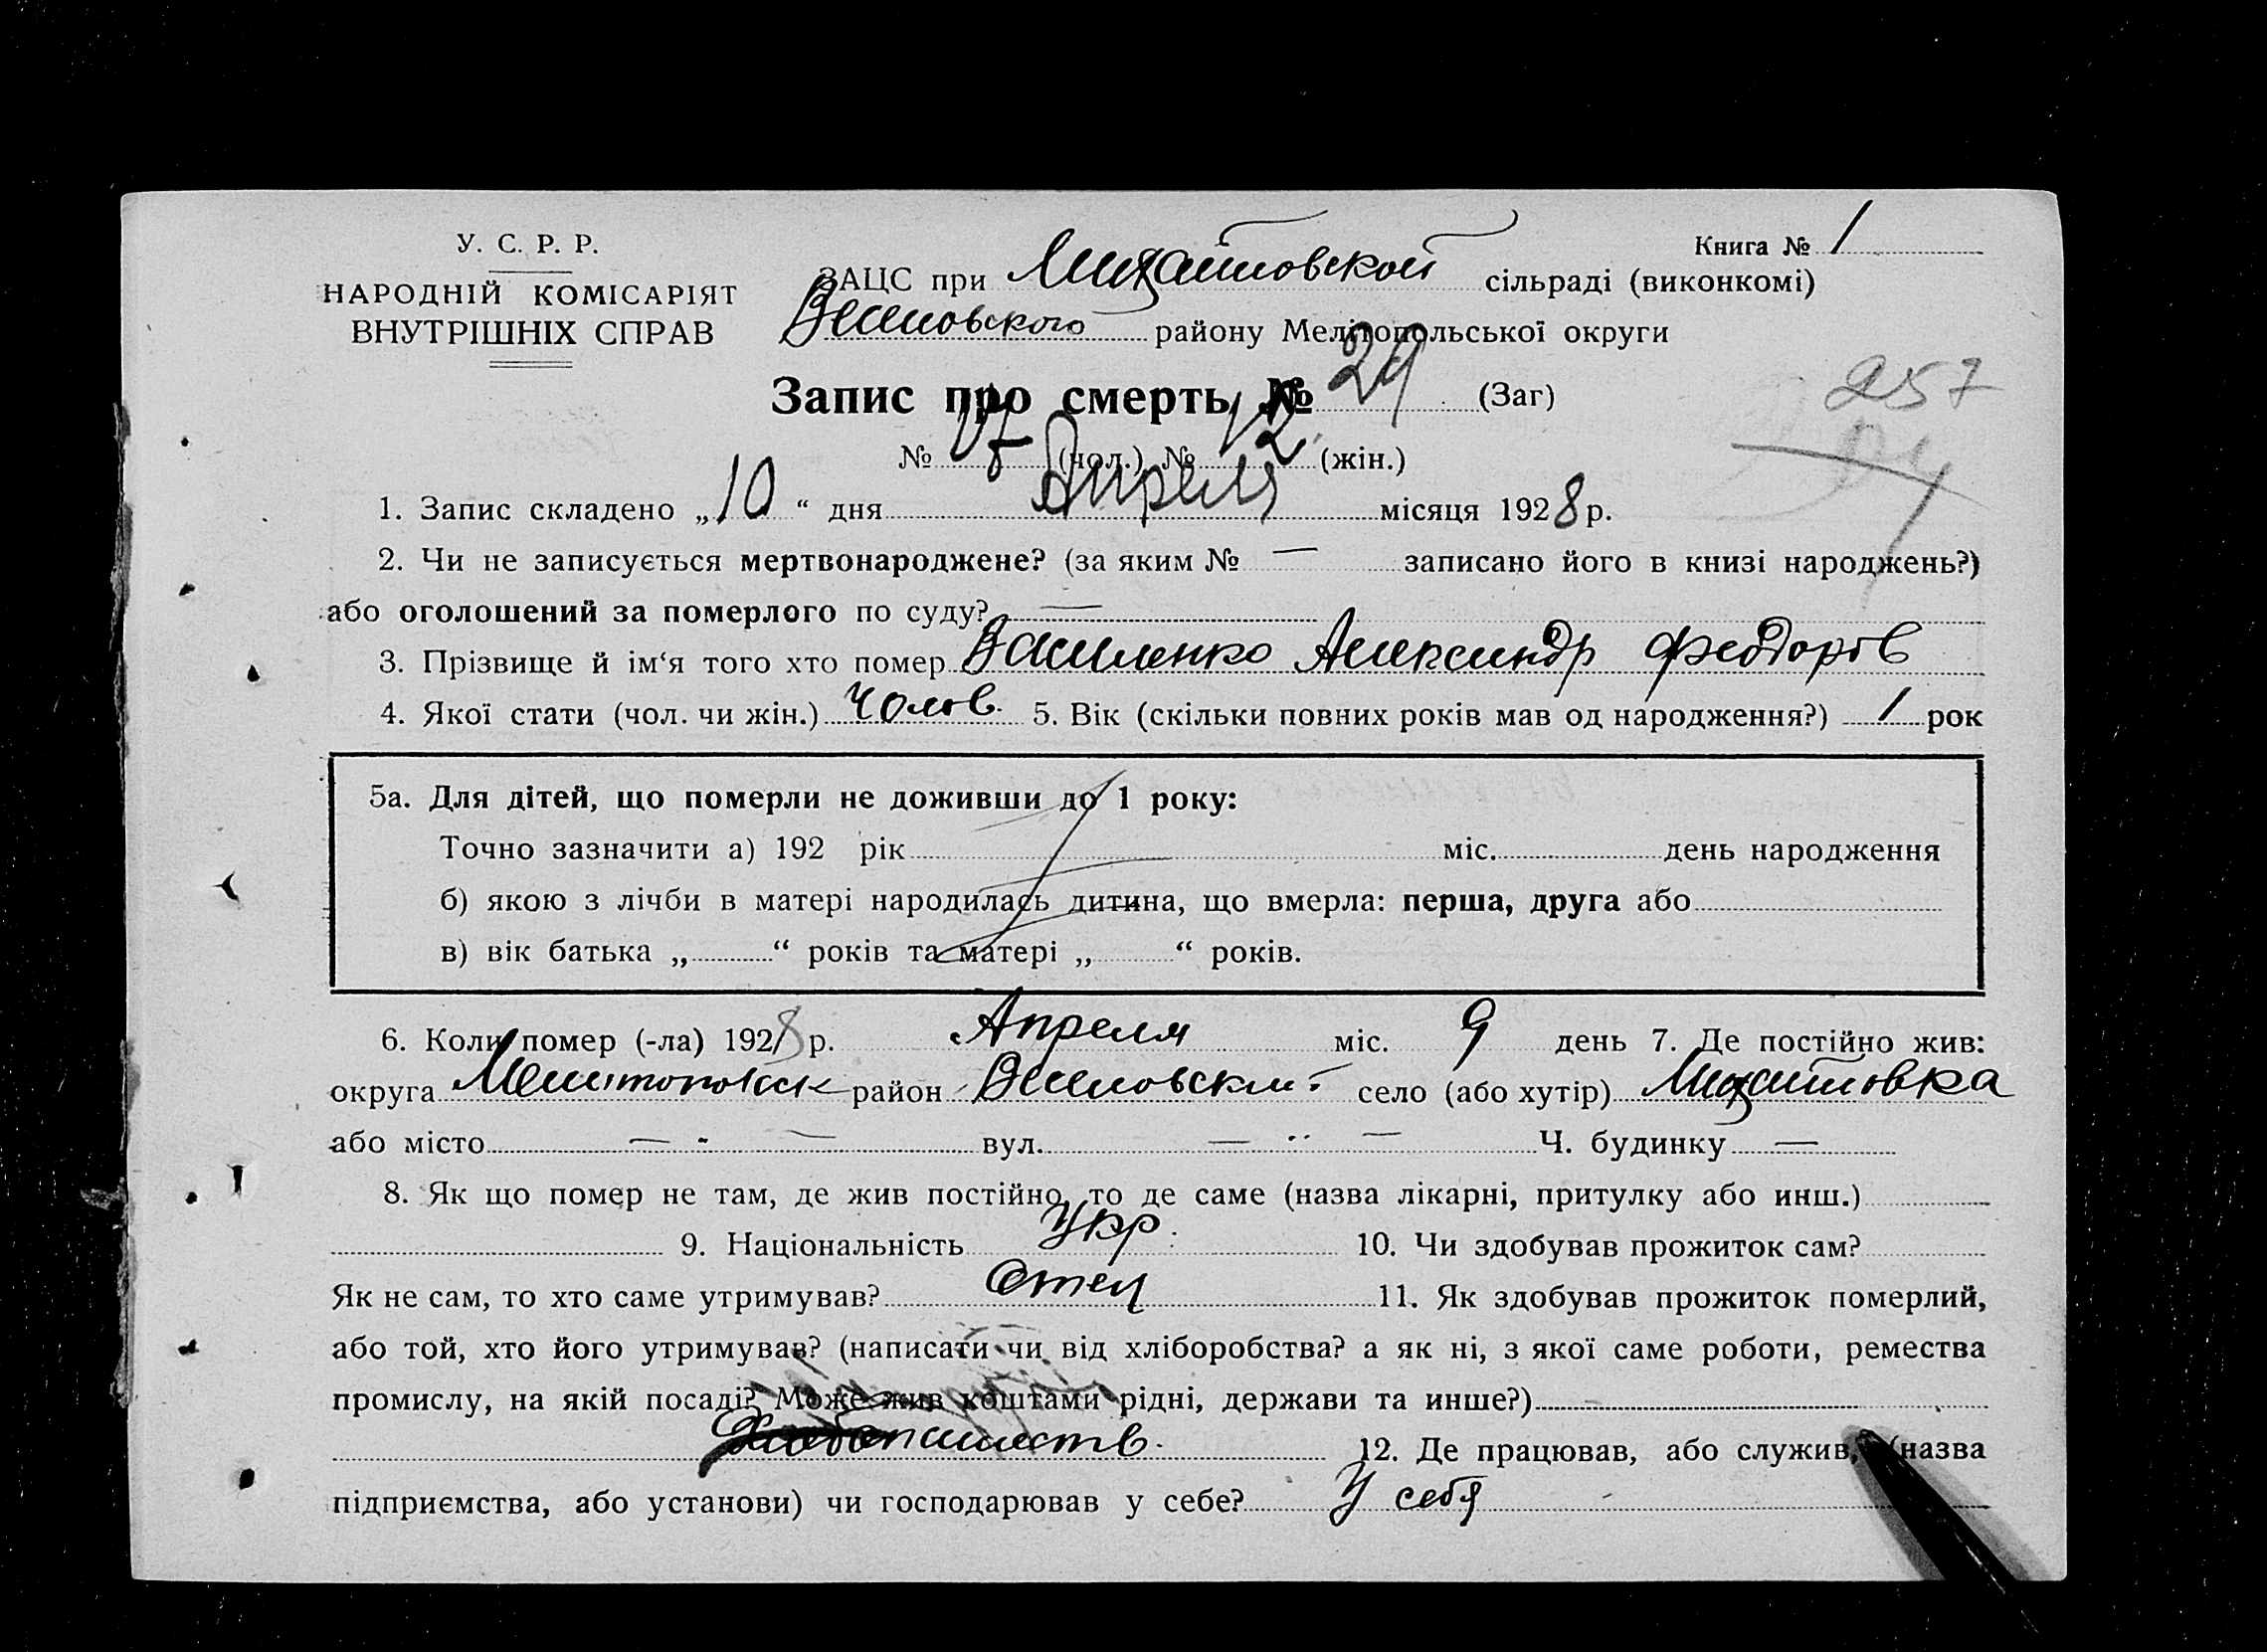 У. С. Р. Р.
НАРОДНІЙ КОМІСАРІЯТ
ВНУТРІШНІХ СПРАВ
Книга № 1
ЗАЦС при Михайловской сільраді (виконкомі)
Веселовского району Мелітопольської округи
Запис про смерть № 29 (Заг)
257
№ 17 (чол.) № 12 (жін.)
1. Запис складено „10“ дня Апреля місяця 1928 р.
2. Чи не записується мертвонароджене? (за яким № — записано його в книзі народжень?)
або оголошений за померлого по суду? —
3. Прізвище й ім‘я того хто помер Василенко Александр Федоров
4. Якої стати (чол. чи жін.) Чолов. 5. Вік (скільки повних років мав од народження?) 1 рок
5а. Для дітей, що померли не доживши до 1 року:
Точно зазначити а) 192 рік міс. день народження
б) якою з лічби в матері народилась дитина, що вмерла: перша, друга або
в) вік батька „ “ років та матері „ “ років.
6. Коли помер (-ла) 1928 р. Апреля міс. 9 день 7. Де постійно жив:
округа район Веселовский село (або хутір) Михайловка
або місто — - — вул. — — Ч. будинку —
8. Як що помер не там, де жив постійно, то де саме (назва лікарні, притулку або инш.)
9. Національність Укр. 10. Чи здобував прожиток сам?
Як не сам, то хто саме утримував? Отец 11. Як здобував прожиток померлий,
або той, хто його утримував? (написати чи від хліборобства? а як ні, з якої саме роботи, ремества
промислу, на якій посаді? Може жив коштами рідні, держави та инше?)
12. Де працював, або служив, (назва
підприємства, або установи) чи господарював у себе? У себя